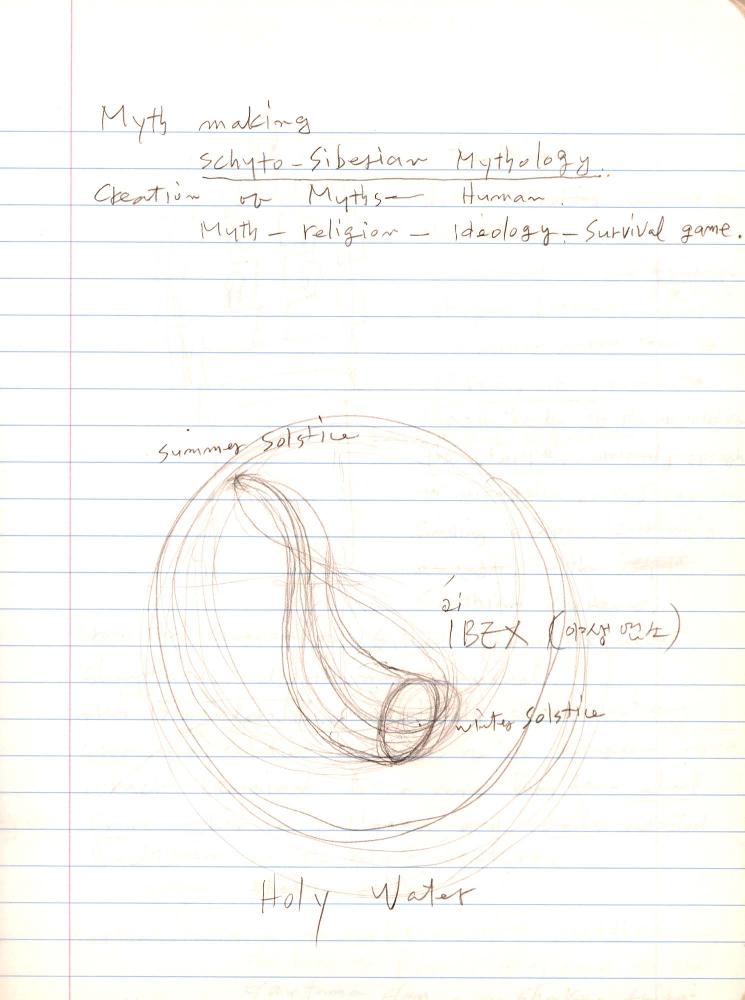 Myth making
Schyto-Siberian Mythology.
Creation of Myths — Human.
Myth — religion — Ideology — Survival game.
Summer Solstice
ái
IBEX (야생 염소)
winter Solstice
Holy Water